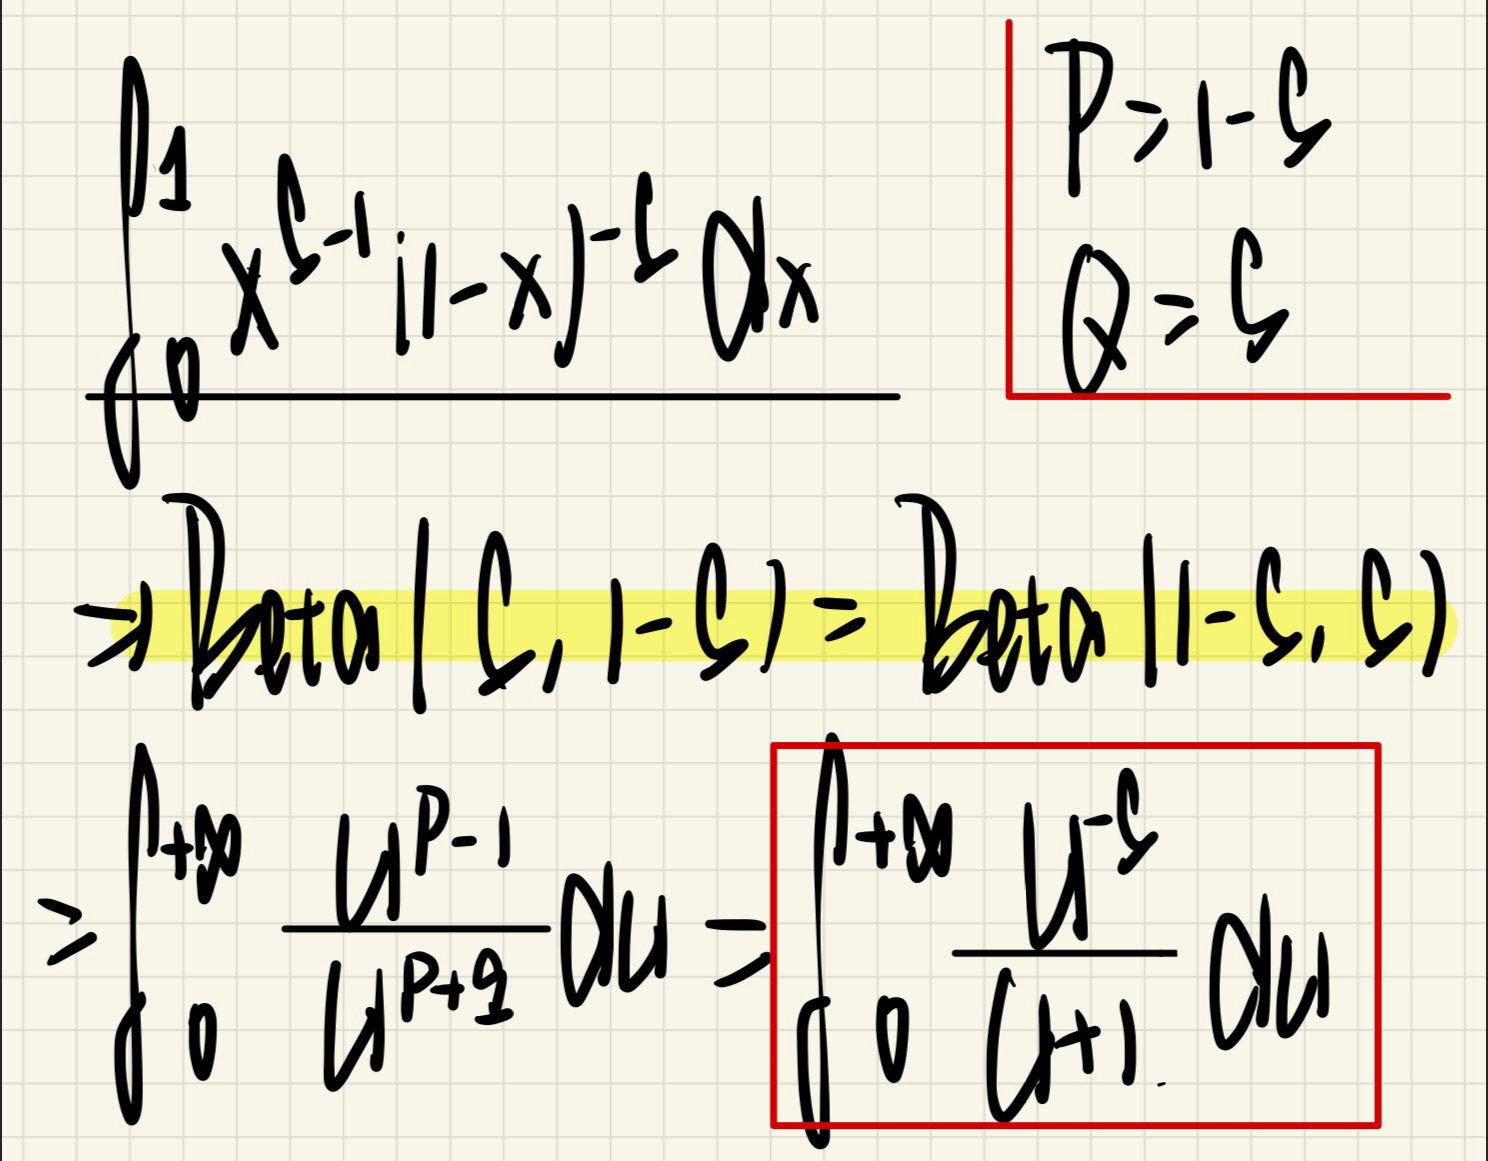 ∫₀¹ x^{s-1} (1-x)^{-s} dx
P = 1-s
Q = s
⇒ Beta(s, 1-s) = Beta(1-s, s)
= ∫₀^{+∞} u^{P-1} / u^{P+q} du = ∫₀^{+∞} u^{-s} / u+1 du